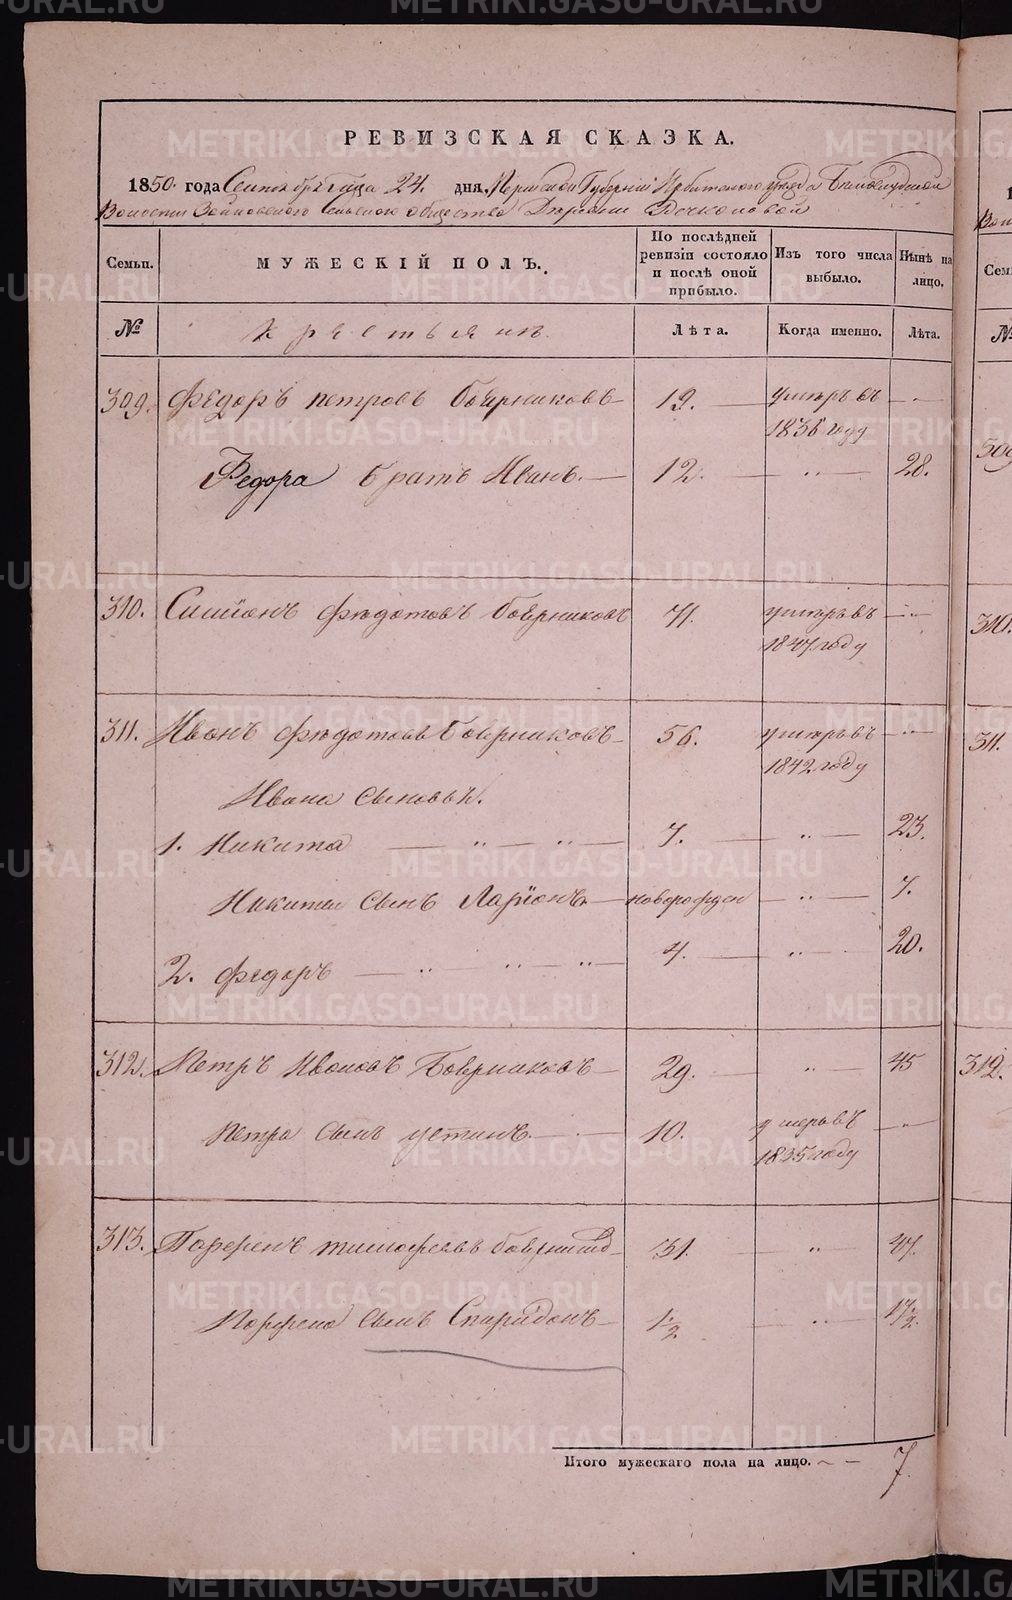 РЕВИЗСКАЯ СКАЗКА.
1850. года Сентября месяца 24. дня. Пермской Губернии Ирбитского уезда Белослудской
Волости Зайковского Сельского общества Деревни
Семьи. МУЖЕСКІЙ ПОЛЪ. По послѣдней ревизіи состояло и послѣ оной прибыло. Изъ того числа выбыло. Нынѣ на лицо.
№ Крестьяне Лѣта. Когда именно. Лѣта.
309. Федоръ петровъ Боярниковъ 19. умеръ въ
1836 году
Федора братъ Иванъ. 12. 28.
310. Симионъ федотовъ Боярниковъ 71. умеръ въ
1847 году
311. Иванъ федотовъ Боярниковъ 56. умеръ въ
1842 году
Ивана сыновья.
1. Никита 7. 23.
Никиты сынъ Ларіонъ новорожден 7.
2. федоръ 4. 20.
312. Петръ Ивановъ Боярниковъ 29. 45
Петра сынъ устинъ. 10. умеръ въ
1835 году
313. Парфенъ тимофеевъ 31. 47.
Парфена сынъ Спиридонъ 1½ 17½.
Итого мужескаго пола на лицо. 7.
METRIKI.GASO-URAL.RU